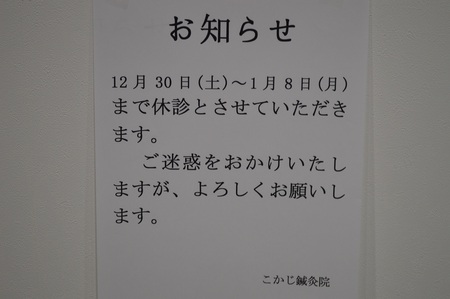 お知らせ
12月30日(土)～1月8日(月)
まで休診とさせていただき
ます。
ご迷惑をおかけいたし
ますが、よろしくお願いし
ます。
こかじ鍼灸院